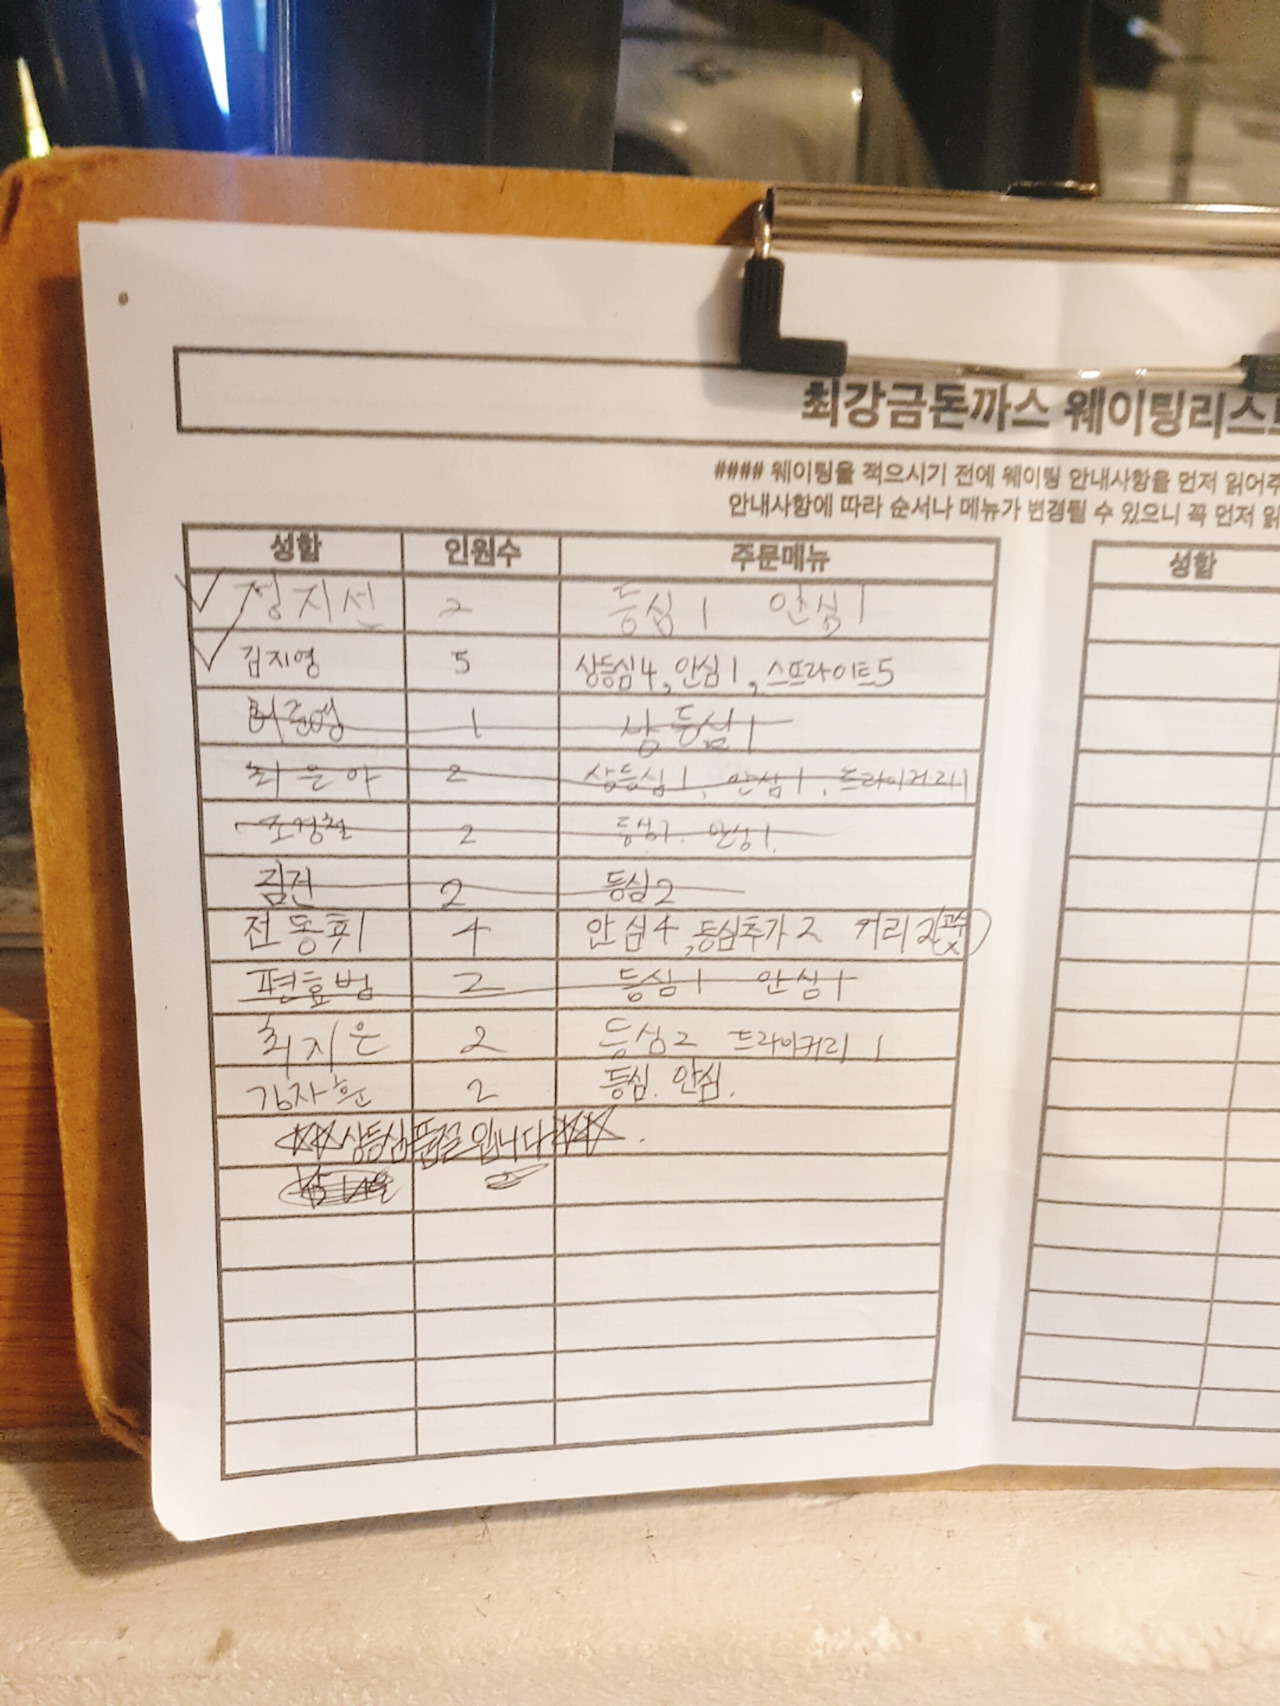 최강금돈까스 웨이팅리스트
#### 웨이팅을 적으시기 전에 웨이팅 안내사항을 먼저 읽어주
안내사항에 따라 순서나 메뉴가 변경될 수 있으니 꼭 먼저 읽
성함 인원수 주문메뉴 성함
정지선 2 등심 1 안심 1
김지영 5 상등심4, 안심1, 스프라이트5
1 상등심 1
최은아 2 상등심 1, 안심 1, 드라이커리 1
조경철 2 등심1. 안심1.
김건 2 등심2
전동휘 4 안심4, 등심추가2 커리2
편효범 2 등심 1 안심 1
최지은 2 등심2 드라이커리 1
김자훈 2 등심. 안심.
상등심 품절 입니다